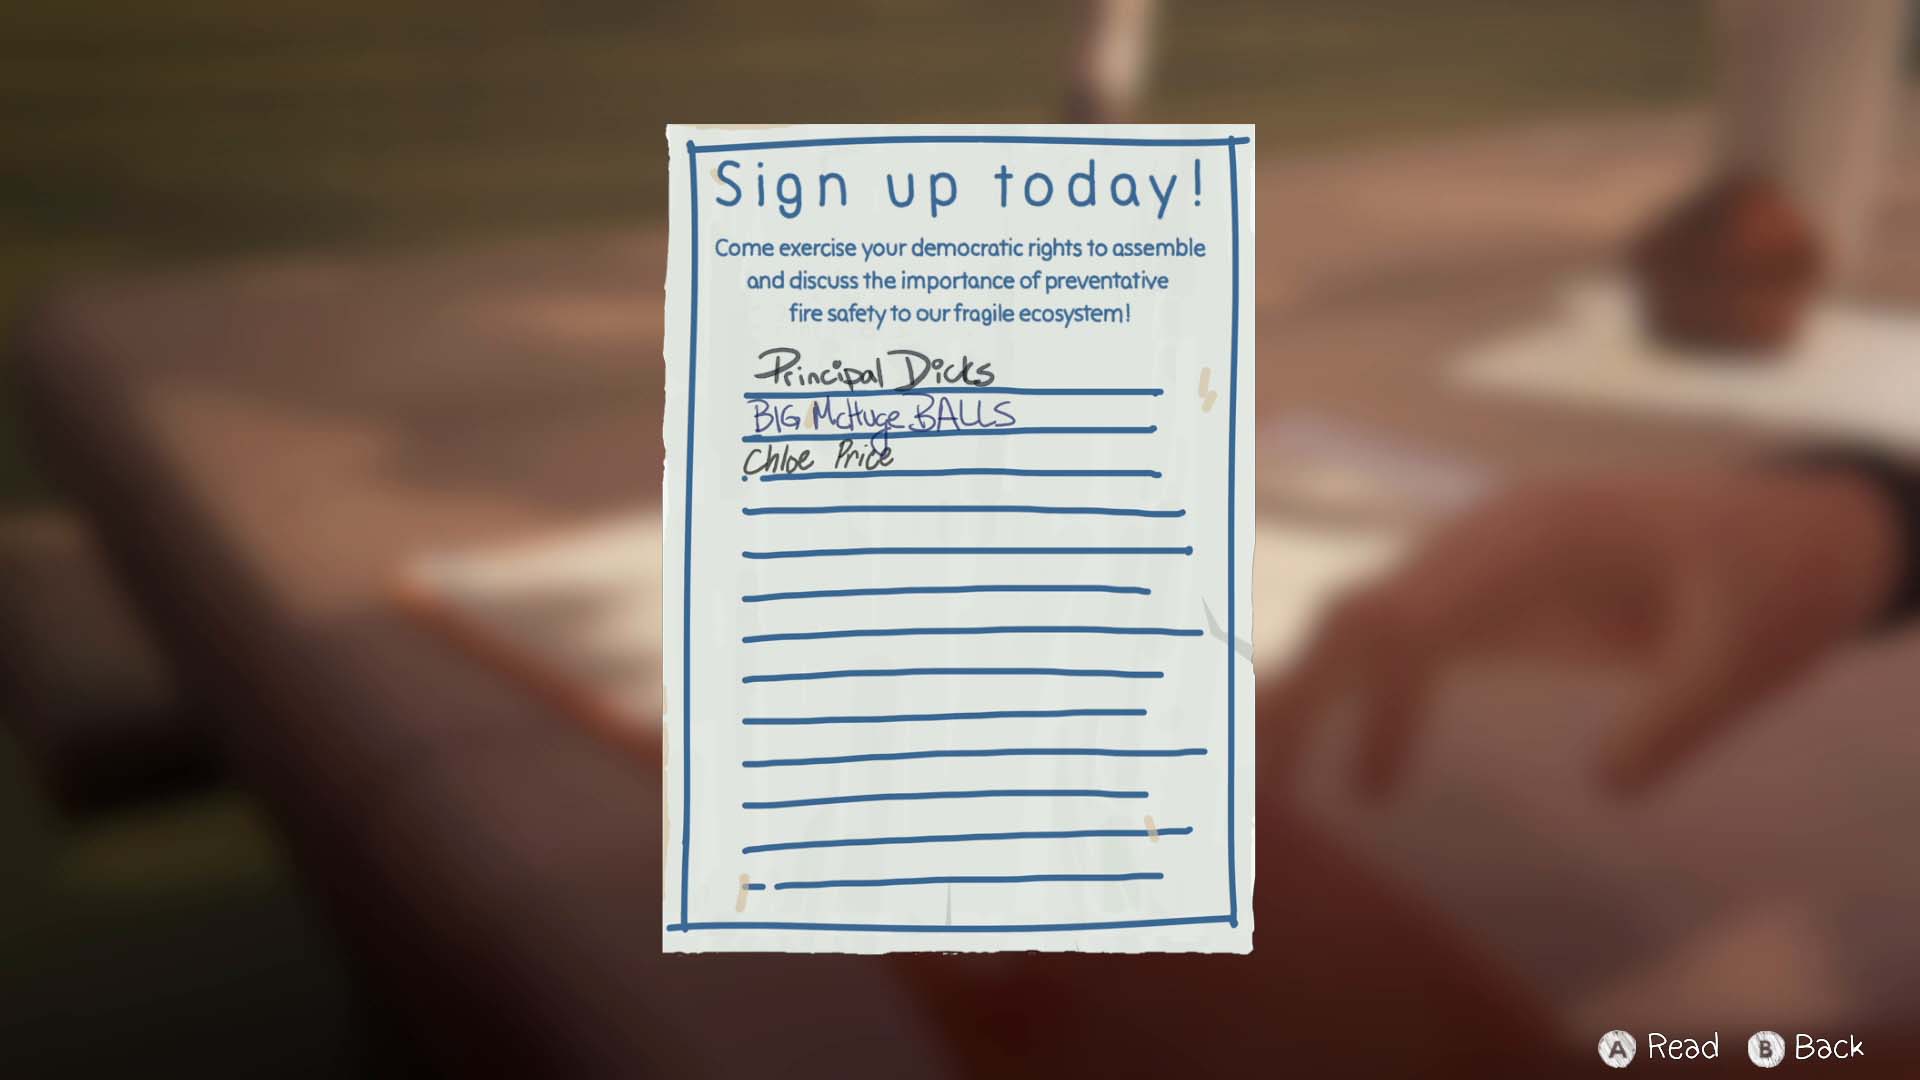 Sign up today!
Come exercise your democratic rights to assemble
and discuss the importance of preventative
fire safety to our fragile ecosystem!
Principal Dicks
BIG McHuge BALLS
Chloe Price
A Read B Back